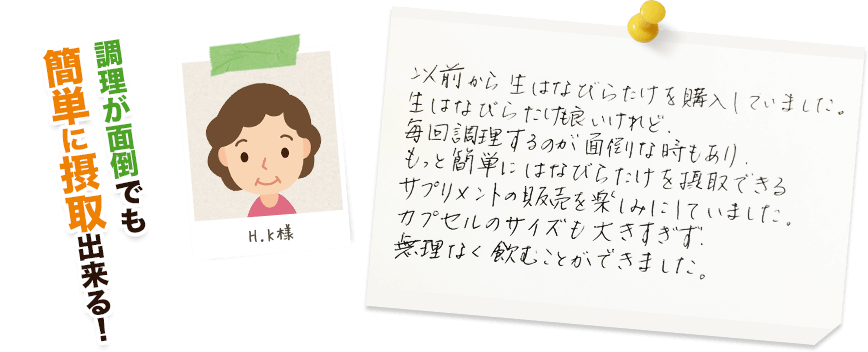 調理が面倒でも
簡単に摂取出来る！
H.K様
以前から生はなびらたけを購入していました。
生はなびらたけも良いけれど、
毎回調理するのが面倒な時もあり、
もっと簡単にはなびらたけを摂取できる
サプリメントの販売を楽しみにしていました。
カプセルのサイズも大きすぎず、
無理なく飲むことができました。